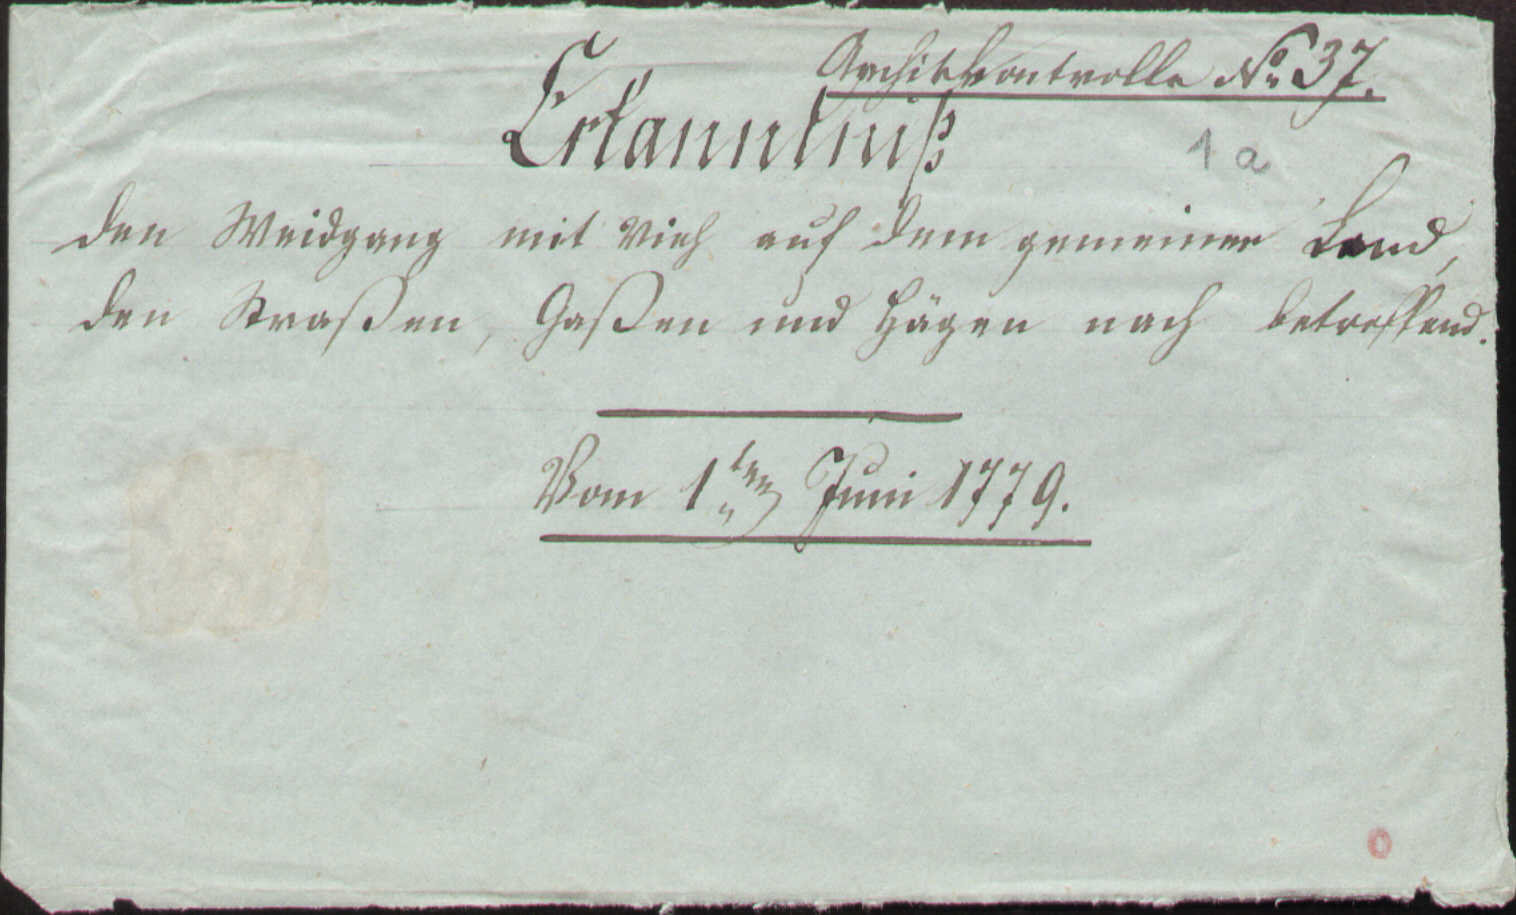 Archivkontrolle No. 37.
Erkanntniß
1 a
den Weidgang mit Vieh auf dem gemeinen Land,
den Straßen, Gaßen und Hägen nach betreffend.
Vom 1ten Juni 1779.